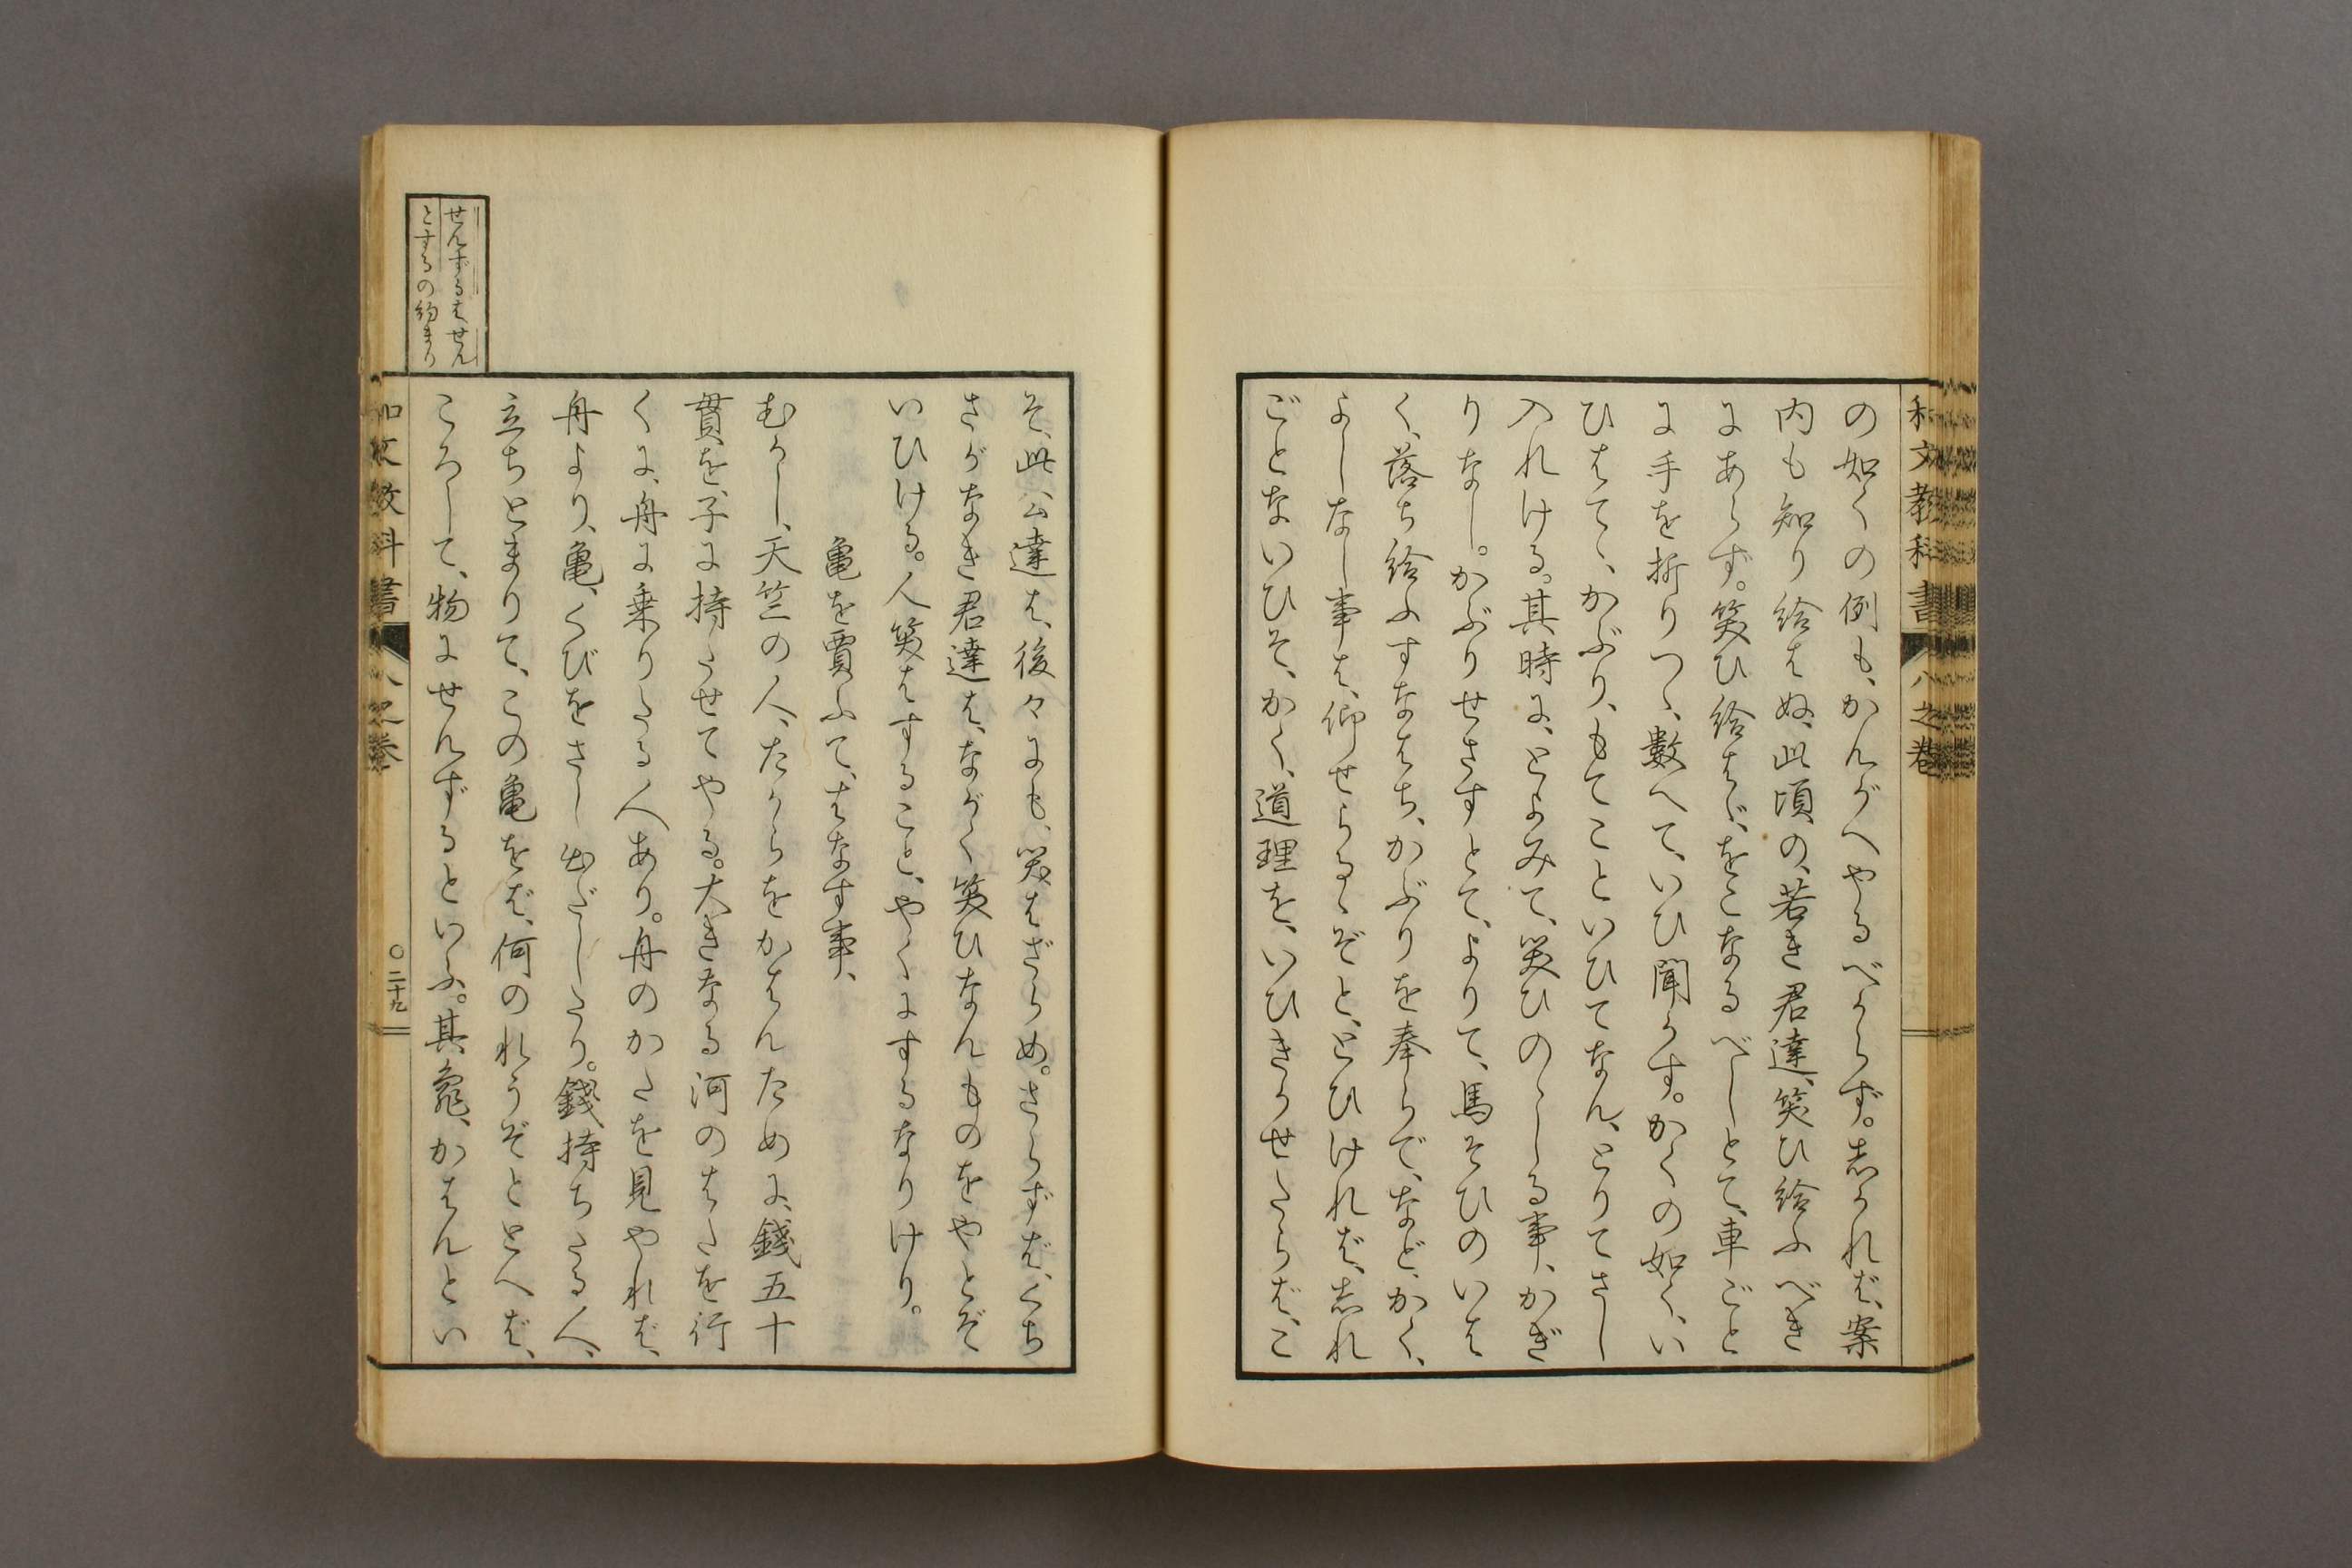 和文教科書 八之巻
の如くの例も、かんがへやるべからず。志かれば、案
内も知り給はぬ、此頃の、若き君達、笑ひ給ふべき
にあらず。笑ひ給はゞ、をこなるべしとて、車ごと
に手を折りつゝ、数へて、いひ聞かす。かくの如く、い
ひはてゝ、かぶり、もてこといひてなん、とりてさし
入れける。其時に、とよみて、笑ひのゝしる事、かぎ
りなし。かぶりせさすとて、よりて、馬そひのいは
く、落ち給ふすなはち、かぶりを奉らで、など、かく、
よしなし事は、仰せらるゝぞと、とひければ、志れ
ごとないひそ、かく、道理を、いひきかせたらば、こ
そ、此公達は、後々にも、笑はざらめ。さらずば、くち
さがなき君達は、ながく笑ひなんものをやとぞ
いひける。人笑はすること、やくにするなりけり。
亀を買ふて、はなす事、
むかし、天竺の人、たからをかはんために、錢五十
貫を、子に持たせてやる。大きなる河のはたを行
くに、舟に乗りたる人あり。舟のかたを見やれば、
舟より、亀、くびをさし出だしたり。錢持ちたる人、
立ちとまりて、この亀をば、何のれうぞととへば、
ころして、物にせんずるといふ。其龜、かはんとい
せんずるはせん
とするの約まり
和文教科書 八之巻 〇二十九